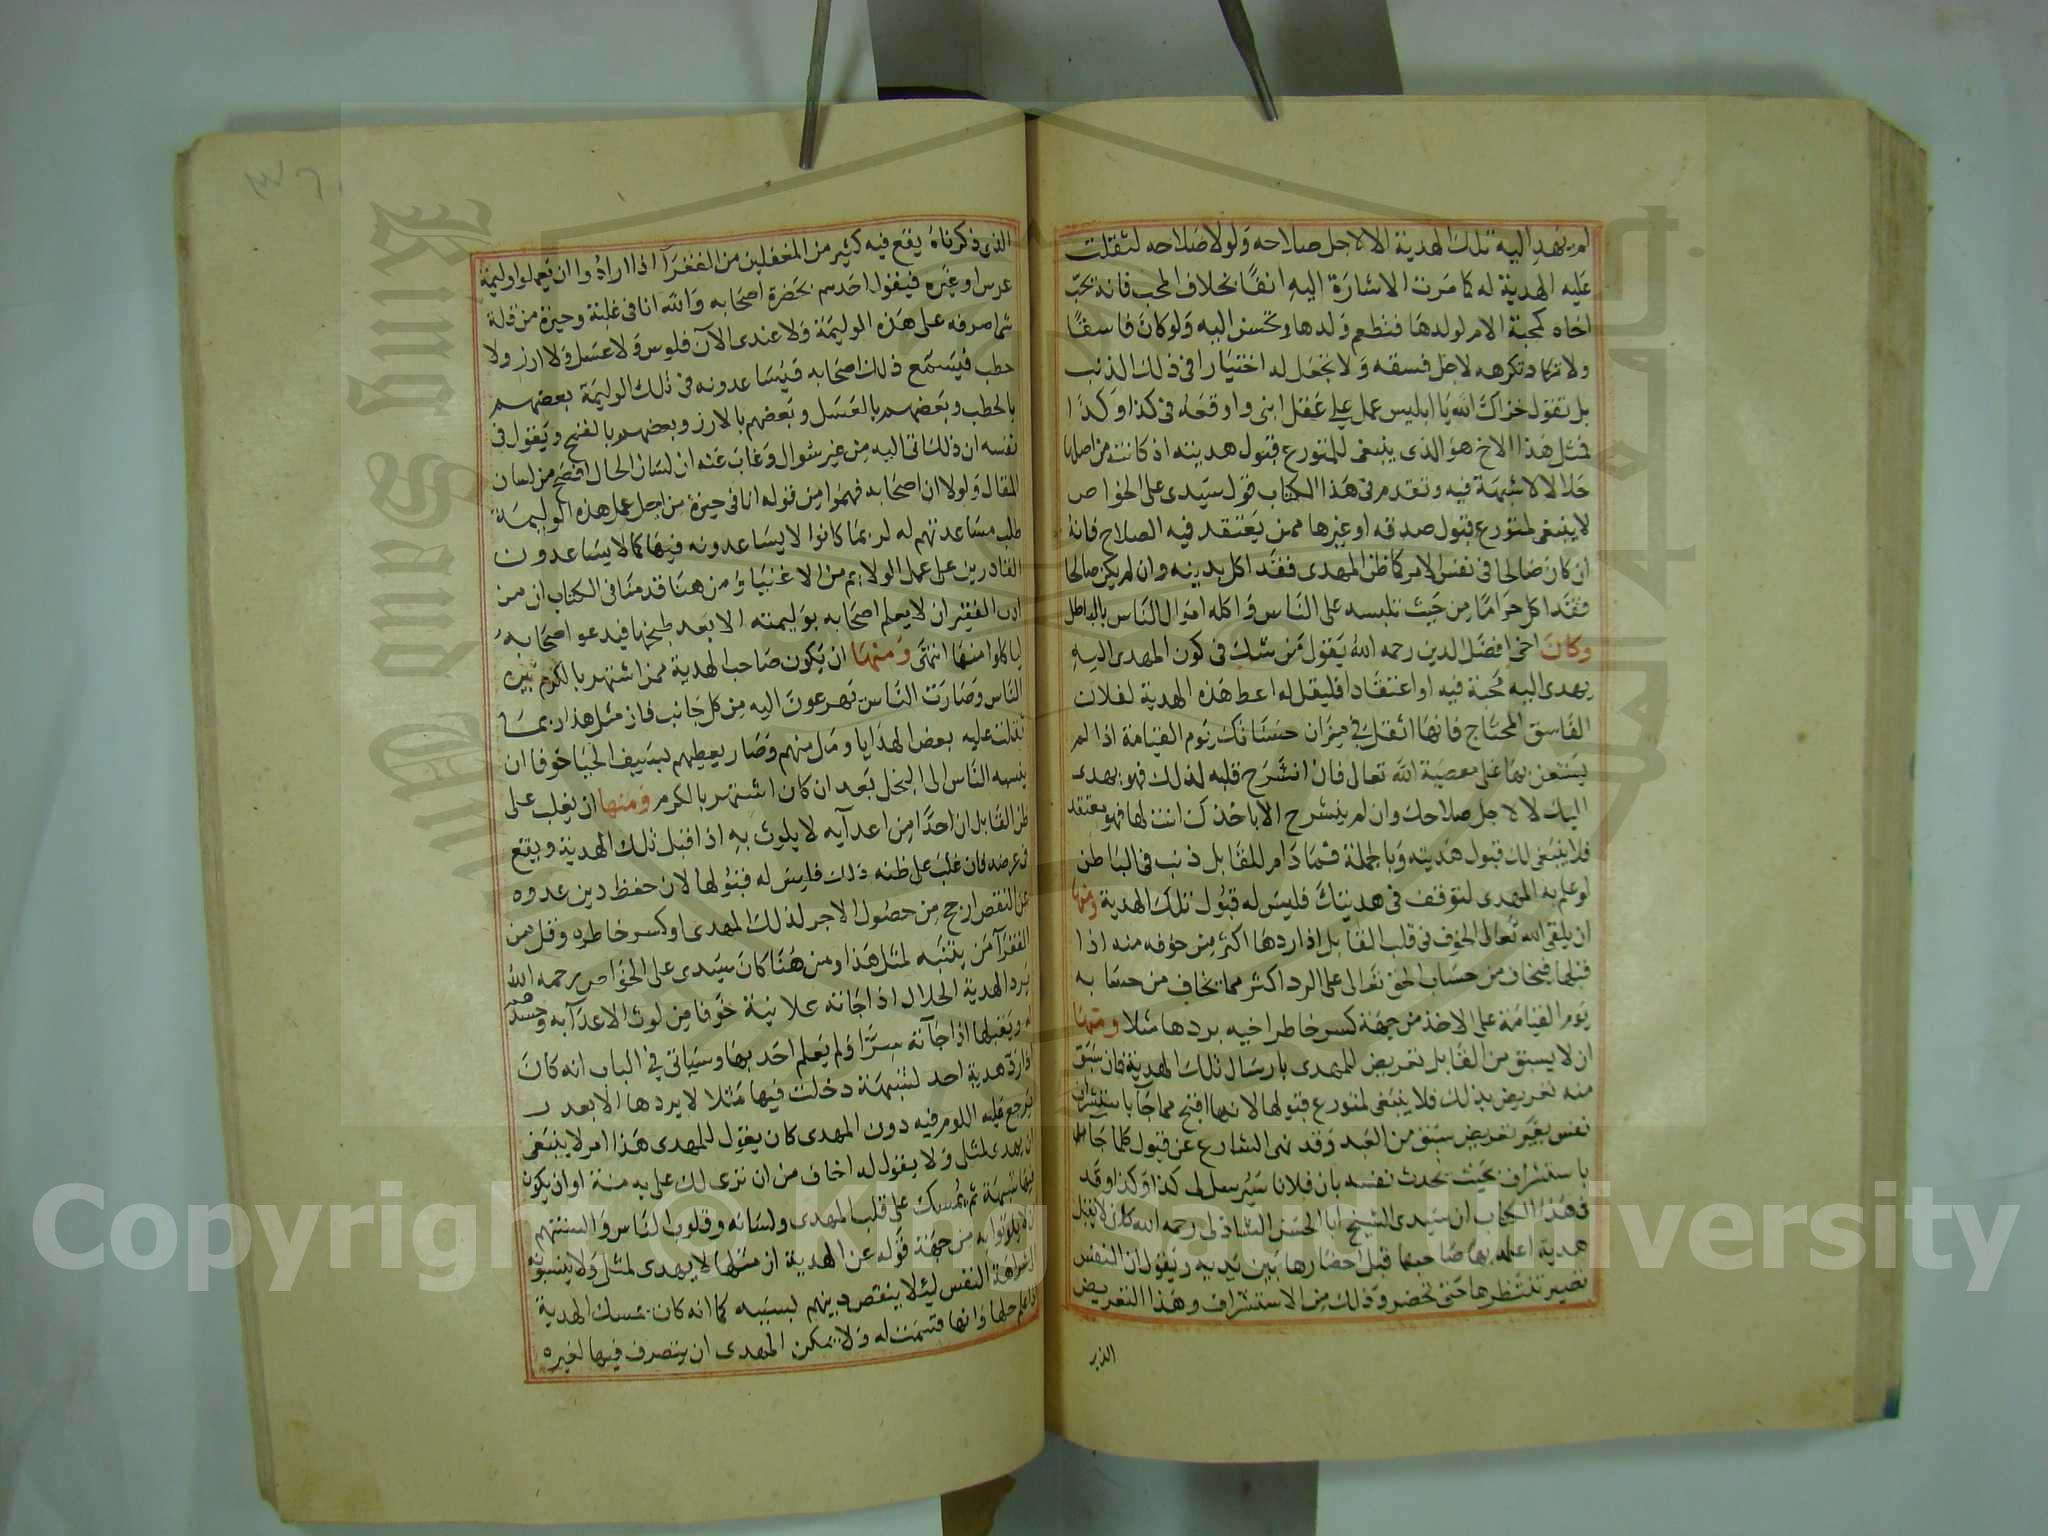 لم يهد اليه تلك الهدية الا لاجل صلاحه ولولا صلاحه لثقلت
عليه الهدية له كما مرت الاشارة اليه انفا بخلاف المحب فانه يحب
اخاه كمحبة الام لولدها فتطعم ولدها وتحسن اليه ولو كان فاسقا
ولا تكاد تكرهه لاجل فسقه ولا تجعل له اختيارا في ذلك الذنب
بل تقول خزاك الله يا ابليس عمل على عقل ابني واوقعه في كذا وكذا
فمثل هذا الاخ هو الذي ينبغي للمتورع قبول هديته اذ كانت من اصلها
حلالا لا شبهة فيه وتقدم في هذا الكتاب قول سيدي على الخواص
لا ينبغي لمتورع قبول صدقه او غيرها ممن يعتقد فيه الصلاح فانه
ان كان صالحا في نفس الامر كما ظن المهدي فقد اكل بدينه وان لم يكن صالحا
فقد اكل حراما من حيث تلبسه على الناس واكله اموال الناس بالباطل
وكان اخي افضل الدين رحمه الله يقول من شك في كون المهدي اليه
يهدي اليه محبة فيه او اعتقادا فليقل له اعط هذه الهدية لفلان
الفاسق المحتاج فانها اثقل في ميزان حسناتك يوم القيامة اذا لم
يستعن بها على معصية الله تعالى فان انشرح قلبه لذلك فهو يهدي
اليك لا لاجل صلاحك وان لم ينشرح الا باخذك انت لها فهو معتقد
فلا ينبغي لك قبول هديته وبالجملة فما دام للمقابل ذنب في الباطن
لو علم به المهدي لتوقف في هديتك فليس له قبول تلك الهدية ومنها
ان يلقى الله تعالى الخوف في قلب القابل اذا ردها اكثر من خوفه منه اذا
قبلها فيخاف من حساب الحق تعالى على الرد اكثر مما يخاف من حسابه
يوم القيامة على الاخذ من جهة كسر خاطر اخيه بردها مثلا ومنها
ان لا يسبق من القابل تعريض للمهدي بارسال تلك الهدية فان سبق
منه تعريض بذلك فلا ينبغي لمتورع قبولها لانها اقبح مما جا باستشراف
نفس بغير تعريض سبق من العبد وقد نهى الشارع عن قبول كلما جا
باستشراف بحيث تحدث نفسه بان فلانا سيرسل لي كذا وكذا وقد
في هذا الكتاب ان سيدي الشيخ ابا الحسن الشاذلي رحمه الله كان لا يقبل
هدية اعلمه بها صاحبها قبل احضارها بين يديه ويقول ان النفس
تصير تنتظرها حتى تحضر وذلك من الاستشراف وهذا التعريض
الذي
الذي ذكرناه يقع فيه كثير من المغفلين من الفقرآ اذا ارادوا ان يعملوا وليمة
عرس او غيره فيقول احدهم بحضرة اصحابه والله انا في غلبة وحيزة من قلة
ما صرفه على هذه الوليمة ولا عندي الآن فلوس ولا عسل ولا ارز ولا
حطب فيسمع ذلك اصحابه فيساعدونه في تلك الوليمة بعضهم
بالحطب وبعضهم بالعسل وبعضهم بالارز وبعضهم بالقمح ويقول في
نفسه ان ذلك اتى اليه من غير سوال وغاب عنه ان لسان الحال افصح من لسان
المقال ولولا ان اصحابه فهموا من قوله انا في حيزة من اجل عمل هذه الوليمة
طلب مساعدتهم له لربما كانوا لا يساعدونه فيها كما لا يساعدون
القادرين على عمل الولايم من الاغنيا ومن هنا قدمنا في الكتاب ان من
ادب الفقير ان لا يعلم اصحابه بوليمته الا بعد طبخها فيدعو اصحابه
لياكلوا منها انتهى ومنها ان يكون صاحب الهدية ممن اشتهر بالكرم بين
الناس وصارت الناس تهرعون اليه من كل جانب فان مثل هذا ربما
ثقلت عليه بعض الهدايا ومل منهم وصار يعطيهم بسيف الحيا خوفا ان
ينسبه الناس الى البخل بعد ان كان اشتهر بالكرم ومنها ان يغلب على
ظن القابل ان احدا من اعدآيه لا يلوث به اذا قبل تلك الهدية ويقع
في عرضه فان غلب على ظنه ذلك فليس له قبولها لان حفظ دين عدوه
عن النقص ارجح من حصول الاجر لذلك المهدي او كسر خاطره وقل من
الفقرآ من يتنبه لمثل هذا ومن هنا كان سيدي على الخواص رحمه الله
يرد الهدية الحلال اذا جاته علانية خوفا من لوث الاعدآ به وحسدهم
له ويقبلها اذا جآته سرا ولم يعلم احد بها وسياتي في الباب انه كان
اذا رد هدية احد لشبهة دخلت فيها مثلا لا يردها الا بعد
يرجع عليه اللوم فيه دون المهدي كان يقول للمهدي هذا امر لا ينبغي
ان يهدي لمثلي ولا يقول له اخاف من ان ترى لك علي به منة او ان يكون
فيها شبهة ثم يمسك على قلب المهدي ولسانه وقلوب الناس والسنتهم
ان لا يلوثوا به من جهة قوله عن الهدية ان مثلها لا يهدى لمثلي ولا ينسبونه
لشراهة النفس ليلا ينقص دينهم بسببه كما انه كان يمسك الهدية
اذا علم حلها وانها قسمت له ولا يمكن المهدي ان يتصرف فيها لغيره